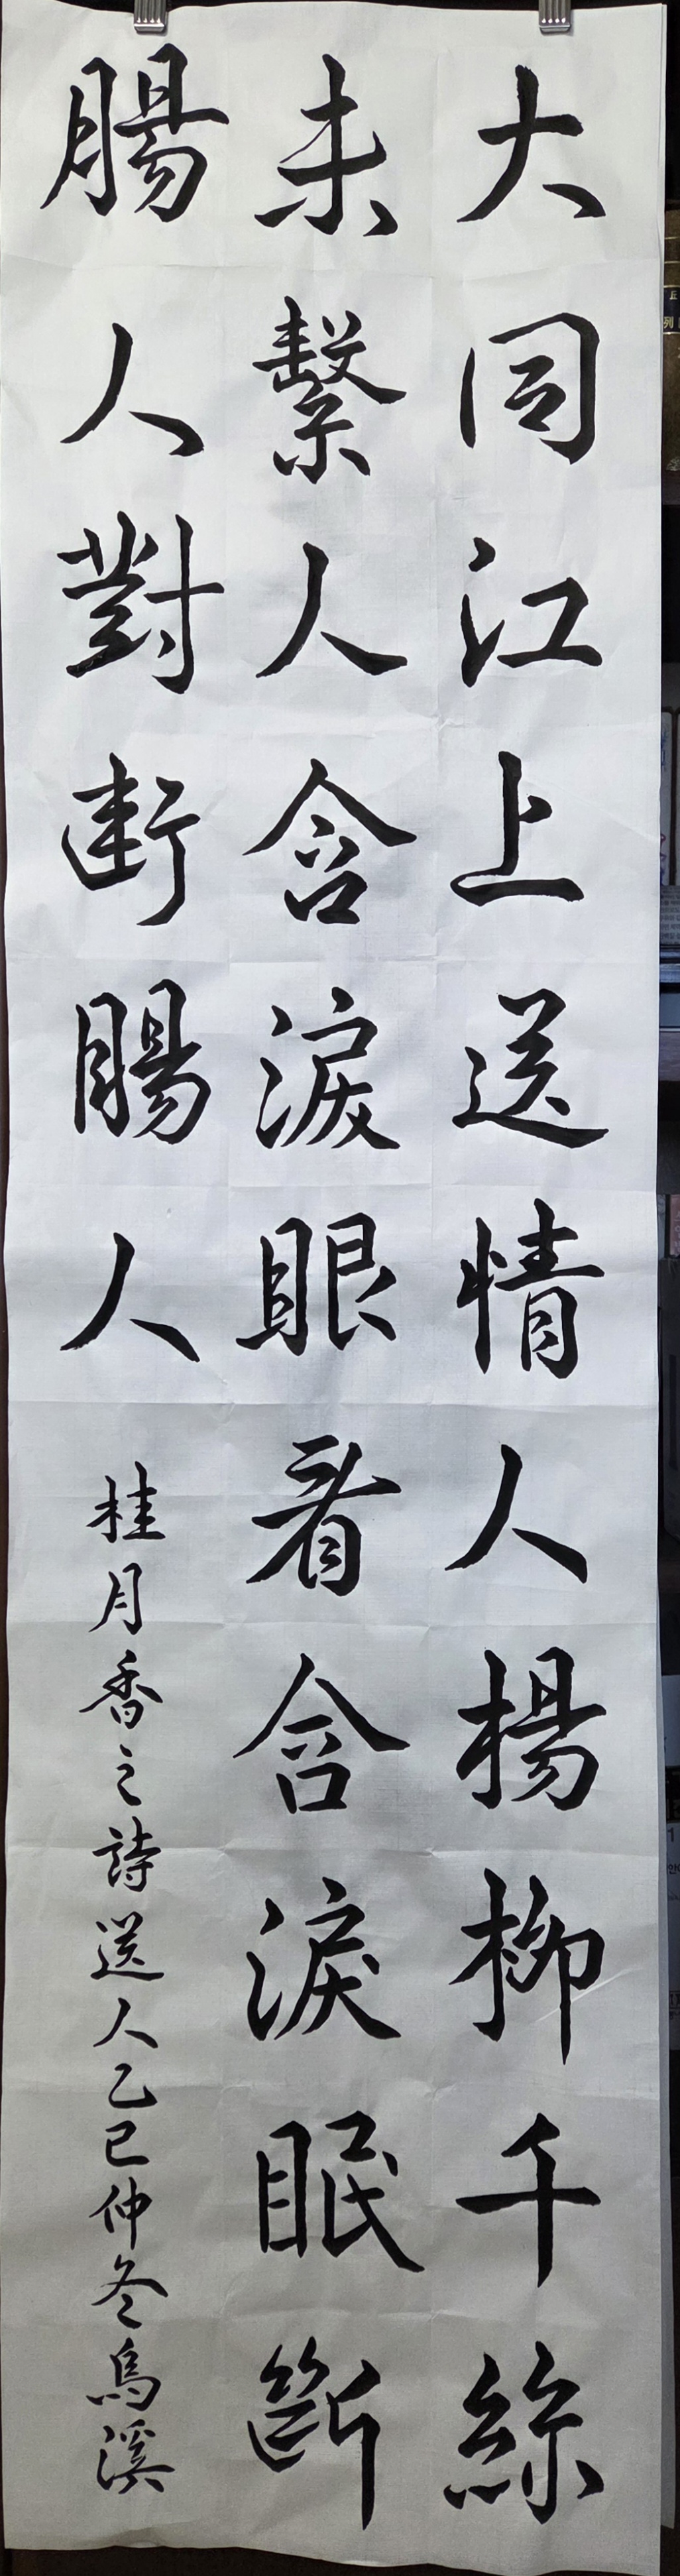 大同江上送情人楊柳千絲
未繫人含淚眼看含淚眠斷
腸人對斷腸人
桂月香之詩送人乙巳仲冬烏溪